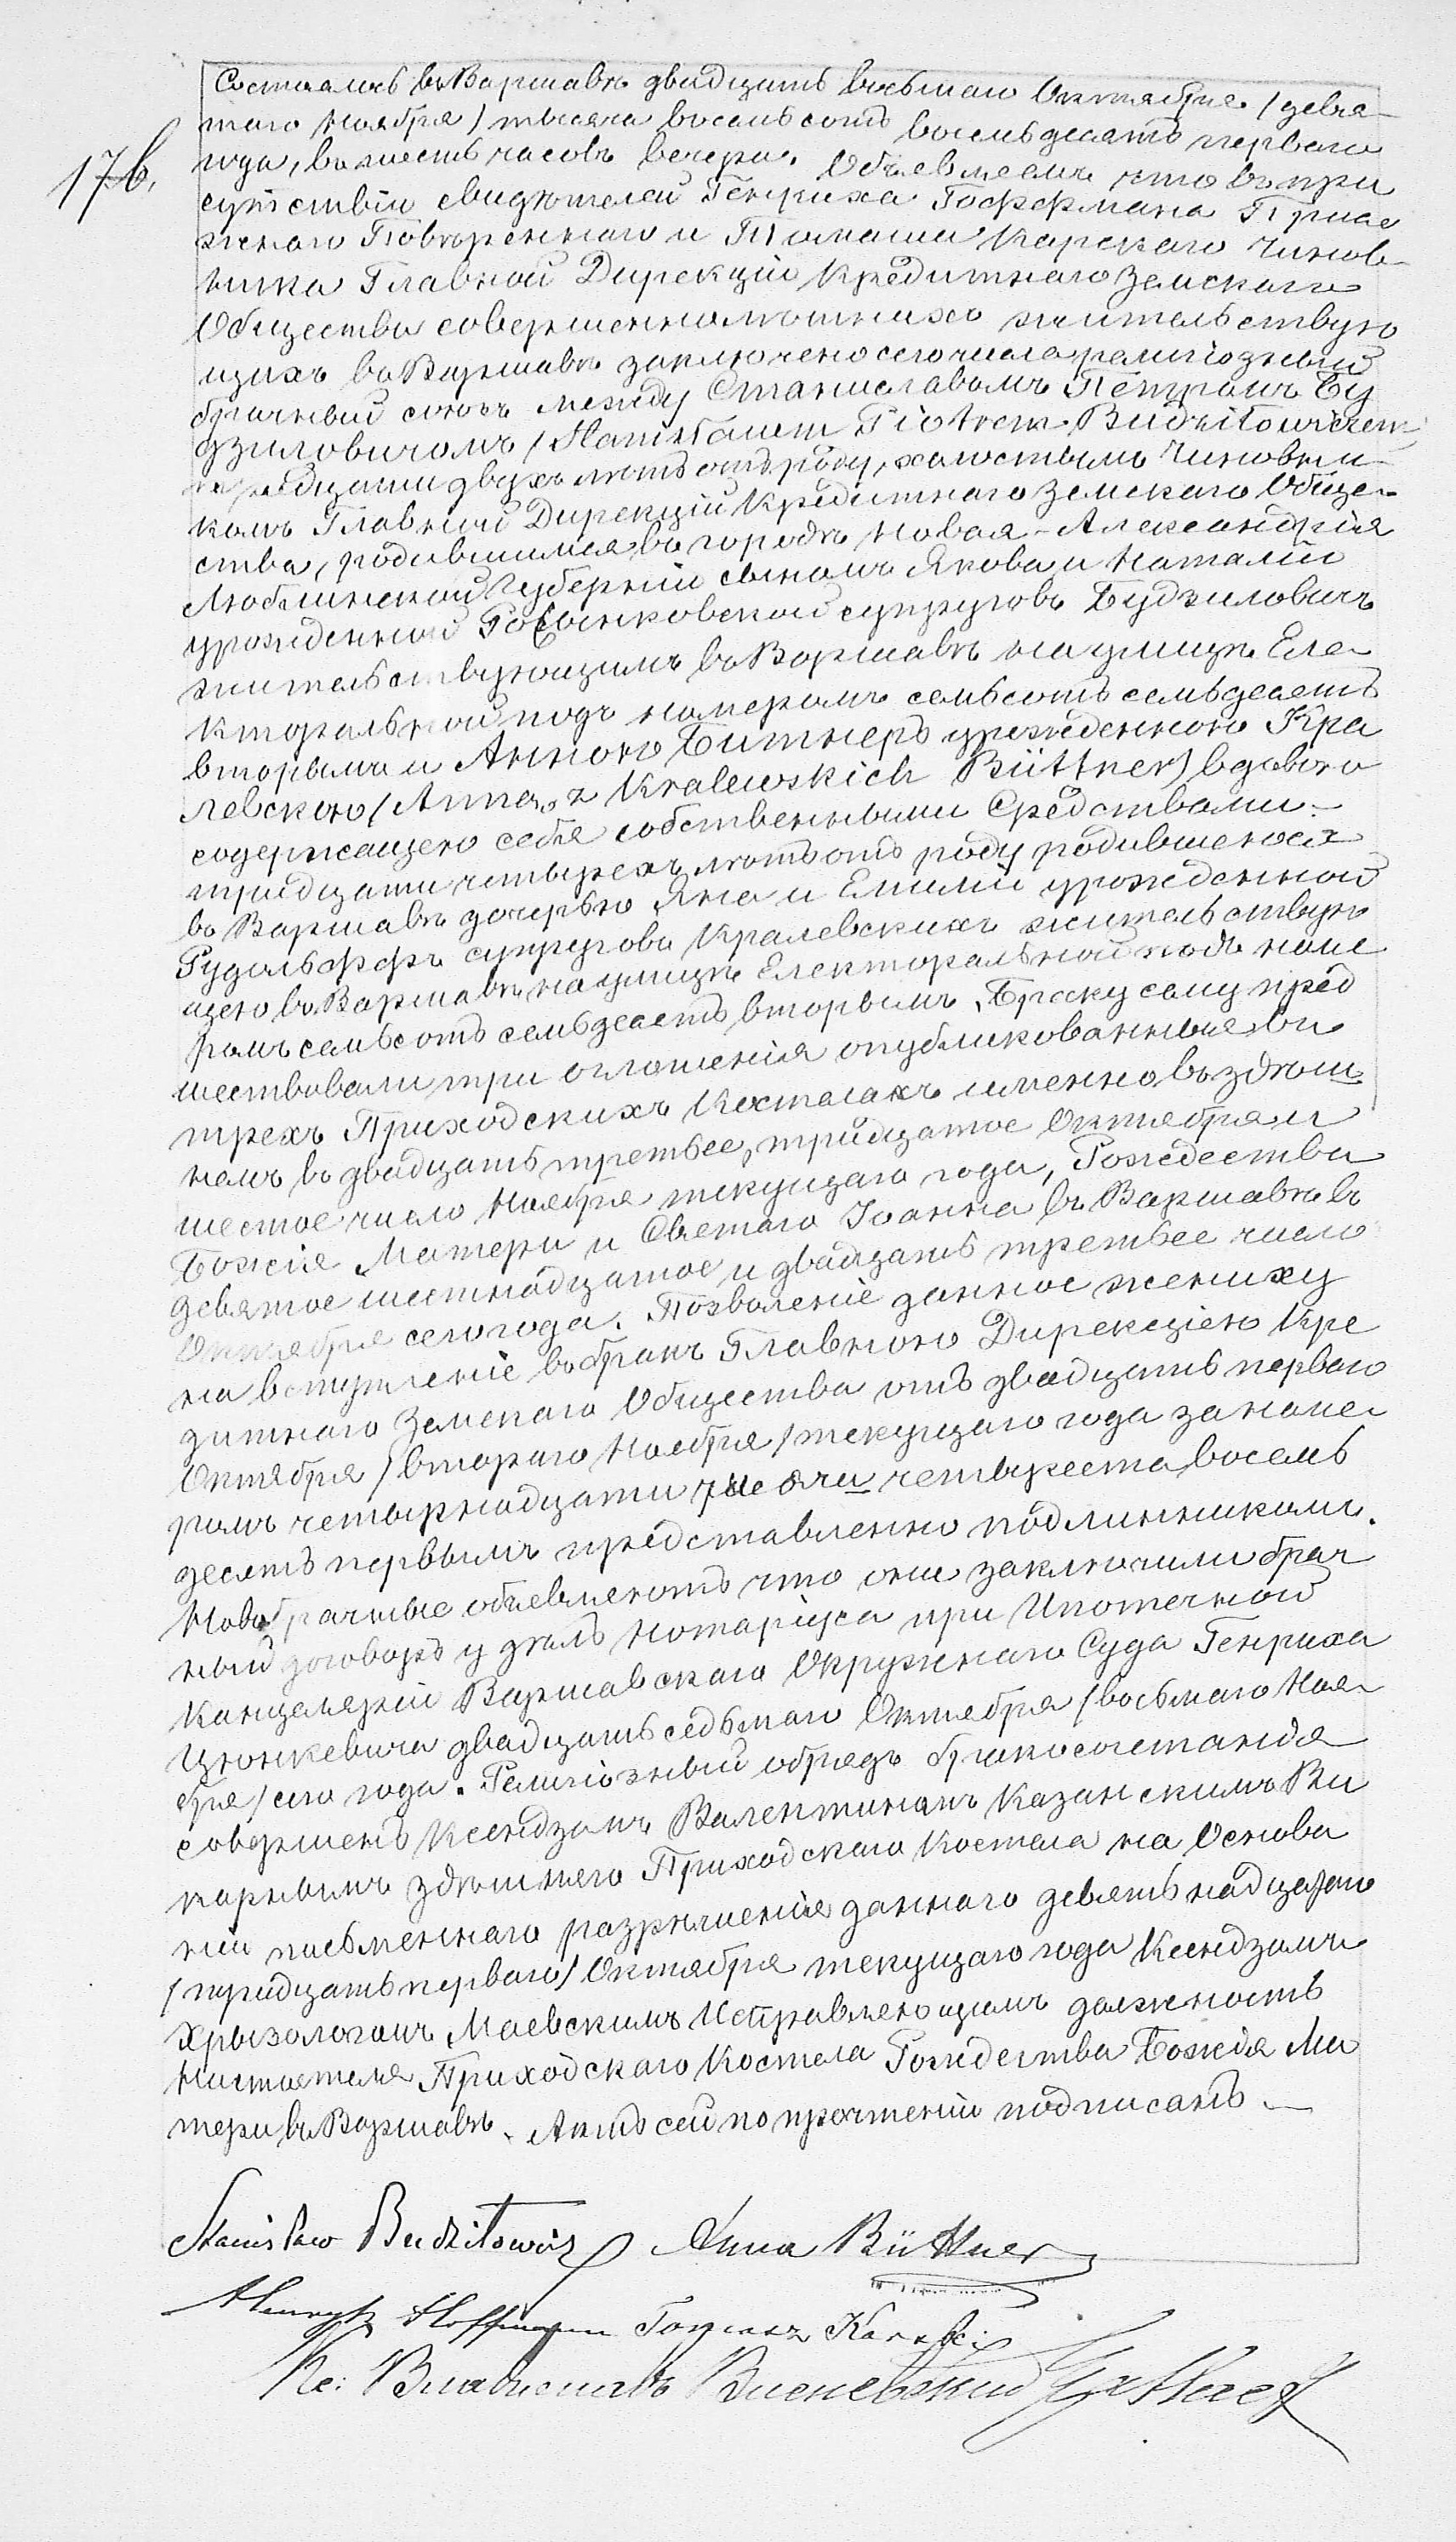 176.
Состоялось въ Варшавѣ двадцать восьмаго Октября /девя-
таго Ноября/ тысяча восемьсотъ восемьдесятъ перваго
года, въ шесть часовъ вечера. Объявляемъ что въ при
сутствіи свидѣтелей Генриха Гоффмана Прися
жнаго Повѣреннаго и Томаша Карскаго Чинов-
ника Главной Дирекціи Кредитнаго Земскаго
Общества совершеннолѣтнихъ жительствую
щихъ въ Варшавѣ заключено сего числа религіозный
брачный союзъ между Станиславомъ Петромъ Бу
дзиловичомъ /Stanisławem Piotrem Budziłowiczem/
тридцати двухъ лѣтъ отъ роду, холостымъ Чиновни-
комъ Главной Дирекціи Кредитнаго Земскаго Обще-
ства, родившимся въ городѣ Новая-Александрія
Люблинской Губерніи сыномъ Якова и Наталіи
урожденной супруговъ Будзиловичъ
жительствующимъ въ Варшавѣ на улицѣ Еле-
кторальной подъ номеромъ семьсотъ семьдесятъ
вторымъ и Анною Битнеръ урожденною Кра
левскою /Anna z Kralewskich Büttner/ вдовою
содержащею себя собственными средствами
тридцати четырехъ лѣтъ отъ роду родившеюся
въ Варшавѣ дочерью Яна и Емиліи урожденной
Рудольффъ супруговъ Кралевскихъ жительствую
щею въ Варшавѣ на улицѣ Електоральной подъ номе
ромъ семьсотъ семьдесятъ вторымъ. Браку сему пред
шествовали три оглашенія опубликованныя въ
трехъ Приходскихъ Костелахъ именно въ здѣш
немъ въ двадцать третье, тридцатое Октября и
шестое число Ноября текущаго года, Рождества
Божіея Матери и Святаго Іоанна въ Варшавѣ въ
девятое шестнадцатое и двадцать третье число
Октября сего года. Позволеніе данное жениху
на вступленіе въ бракъ Главною Дирекціею Кре
дитнаго Земскаго Общества отъ двадцать перваго
Октября /втораго Ноября/ текущаго года за номе-
ромъ четырнадцати тысячи четыреста восемь
десятъ первымъ представленно подлинникомъ.
Новобрачные объявляютъ что они заключили брач
ный договоръ у дѣлъ Нотаріуса при Ипотечной
Канцеляріи Варшавскаго Окружнаго Суда Генриха
Цюнкевича двадцать седьмаго Октября /восьмаго Ноя-
бря/ сего года. Религіозный обрядъ бракосочетанія
совершенъ Ксендзомъ Валентиномъ Казанскимъ Ви
карнымъ здѣшняго Приходскаго Костела на Основа
ніи письменнаго разрѣшенія даннаго девятьнадцатаго
/тридцать перваго/ Октября текущаго года Ксендзомъ
Хрызологомъ Маевскимъ Исправляющимъ должность
Настоятеля Приходскаго Костела Рождества Божія Ма
тери въ Варшавѣ. Актъ сей по прочтеніи подписанъ. —
Stanisław Budziłowicz Anna Büttner
Henryk Hoffmann Tomasz Karski
Кс: Владиславъ